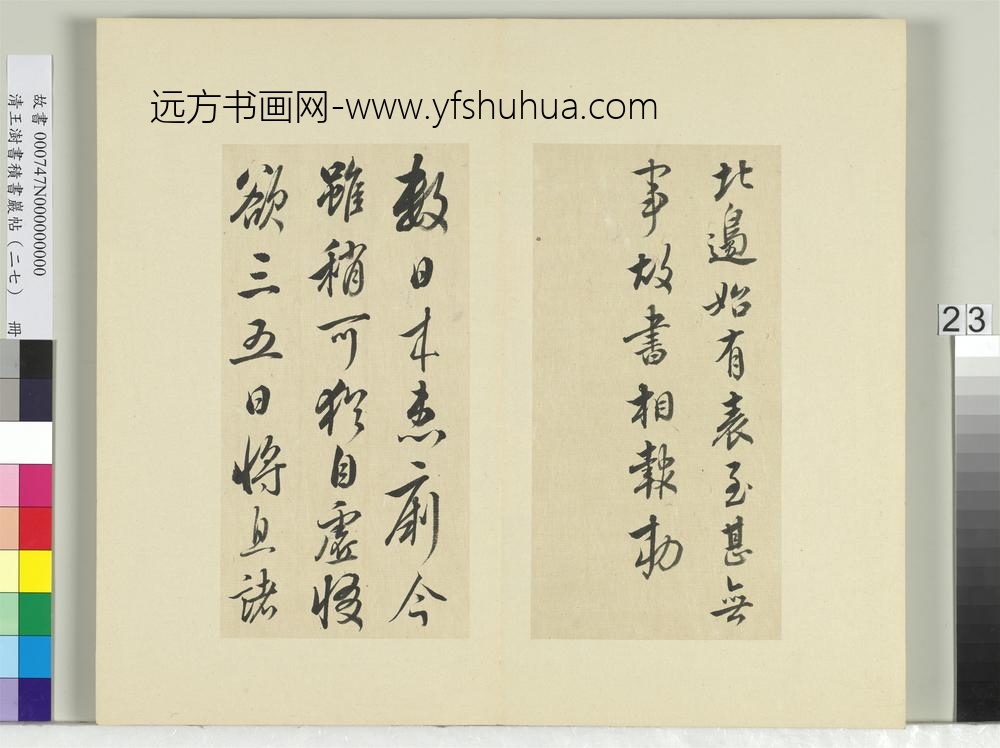 远方书画网-www.yfshuhua.com
故書 000747N000000000
清王澍書積書巖帖（二七） 冊
北邊始有表至甚無
事故書相報勅
數日来患痢今
雖稍可猶自虛惙
欲三五日將息諸
23